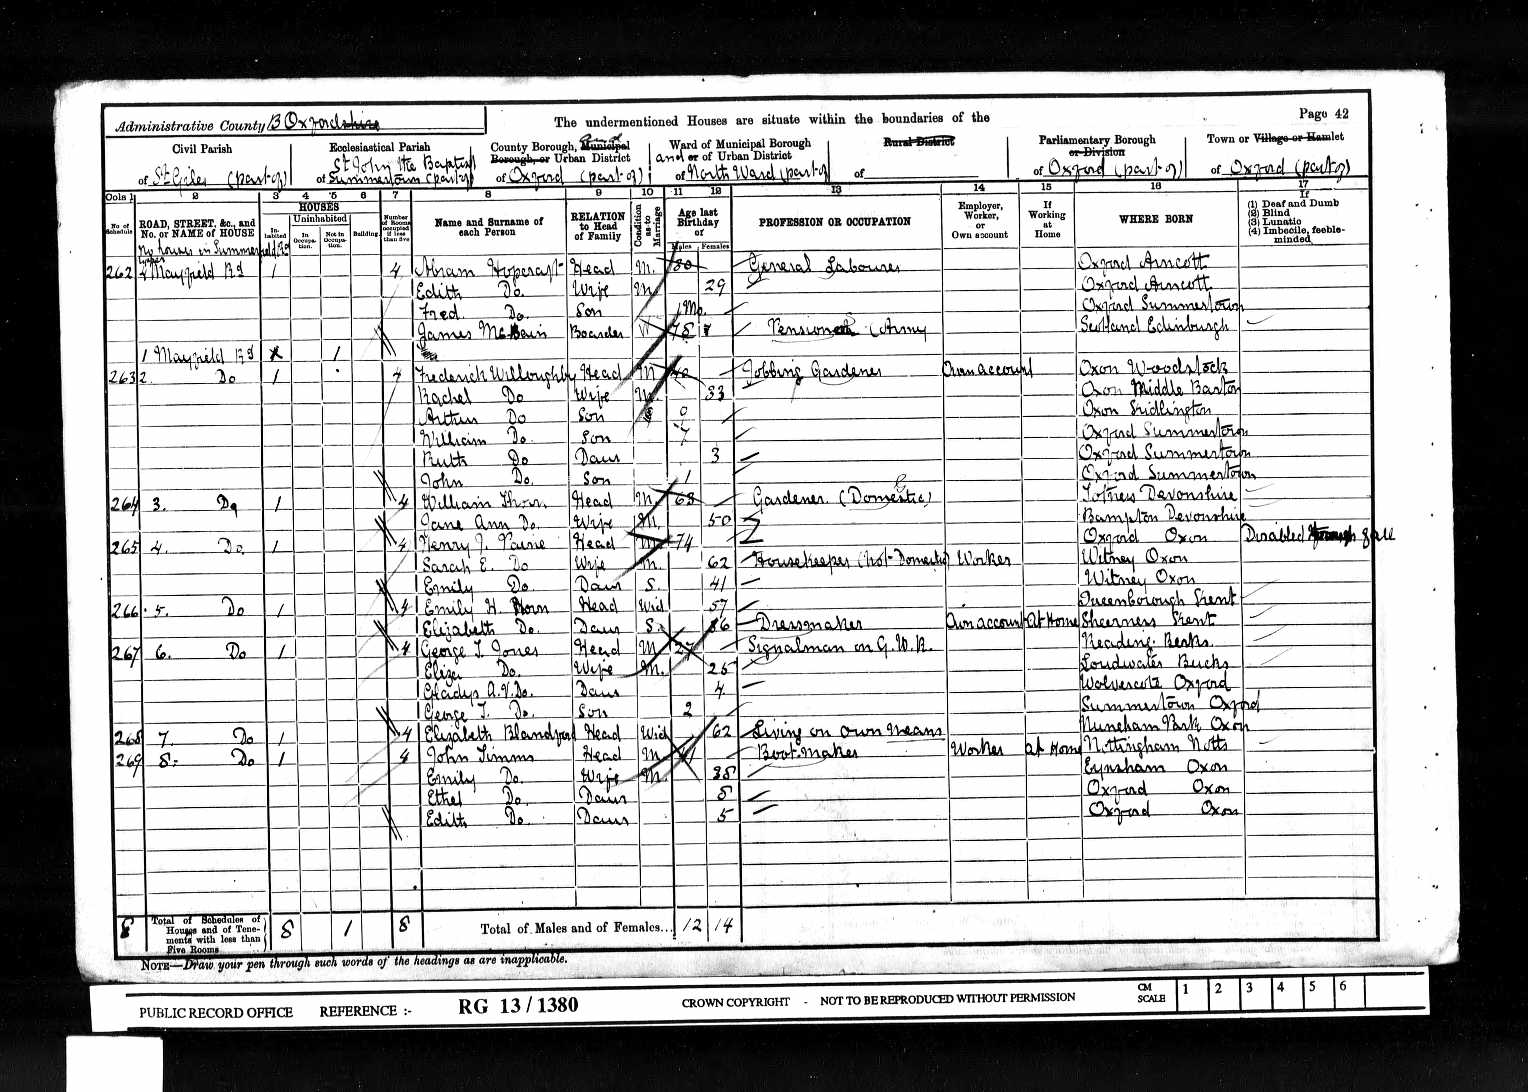 Page 42
Administrative County B Oxfordshire
The undermentioned Houses are situate within the boundaries of the
Civil Parish
of St Giles (part of)
Ecclesiastical Parish
St John the Baptist
of Summertown (part of)
County Borough, Municipal and
Borough, or Urban District
of Oxford (part of)
Ward of Municipal Borough
and or of Urban District
of North Ward (part of)
Rural District
of
Parliamentary Borough
or Division
of Oxford (part of)
Town or Village or Hamlet
of Oxford (part of)
Cols 1 2 3 4 5 6 7 8 9 10 11 12 13 14 15 16 17
No of Schedule
ROAD, STREET, &c., and No. or NAME of HOUSE
HOUSES
Inhabited
Uninhabited
In Occupation.
Not in Occupation.
Building
Number of Rooms occupied if less than five
Name and Surname of each Person
RELATION to Head of Family
Condition as to Marriage
Age last Birthday of
Males Females
PROFESSION OR OCCUPATION
Employer, Worker, or Own account
If Working at Home
WHERE BORN
If (1) Deaf and Dumb (2) Blind (3) Lunatic (4) Imbecile, feeble-minded
No houses in Summerfield Rd
262 Mayfield Rd 1 4 Abram Hopcraft Head M. 30 General Labourer Oxford Arncott
Edith Do. Wife M. 29 Oxford Arncott
Fred. Do. Son 1 Mo. Oxford Summertown
James McBain Boarder W 78 Pensioner (Army Scotland Edinburgh
1 Mayfield Rd 1
263 2. Do 1 4 Frederick Willoughby Head M Jobbing Gardener Own account Oxon Woodstock
Rachel Do Wife M. 33 Oxon Middle Barton
Arthur Do Son 9 Oxon Kidlington
William Do. Son 7 Oxford Summertown
Ruth Do Daur 3 Oxford Summertown
John Do. Son 1 Oxford Summertown
264 3. Do 1 4 William Thorn Head M 63 Gardener (Domestic) Devonshire
Jane Ann Do. Wife M. 50 Bampton Devonshire
265 4. Do. 1 4 Henry J. Head M. 74 Oxford Oxon Disabled fall
Sarah E. Do Wife M. 62 Housekeeper (not Domestic) Worker Witney Oxon
Emily Do. Daur S. 41 Witney Oxon
266 5. Do 1 4 Emily H. Horn Head Wid 57 Queenborough Kent
Elizabeth Do. Daur S. 36 Dressmaker Own account At Home Sheerness Kent
267 6. Do 1 4 George T. Jones Head M. 27 Signalman on G.W.R. Reading Berks.
Eliza Do. Wife M. 25 Loudwater Bucks
Gladys A.V. Do. Daur 4 Wolvercote Oxford
George T. Do. Son 2 Summertown Oxford
268 7. Do 1 4 Elizabeth Blandford Head Wid 62 Living on own means Nuneham Park Oxon
269 8. Do 1 4 John Timms Head M 41 Boot-maker Worker At Home Nottingham Notts
Emily Do. Wife M. 38 Eynsham Oxon
Ethel Do. Daur 8 Oxford Oxon
Edith Do. Daur 5 Oxford Oxon
8 Total of Schedules of Houses and of Tenements with less than Five Rooms 8 1 8 Total of Males and of Females... 12 14
NOTE—Draw your pen through such words of the headings as are inapplicable.
PUBLIC RECORD OFFICE REFERENCE :- RG 13 / 1380 CROWN COPYRIGHT - NOT TO BE REPRODUCED WITHOUT PERMISSION CM SCALE 1 2 3 4 5 6